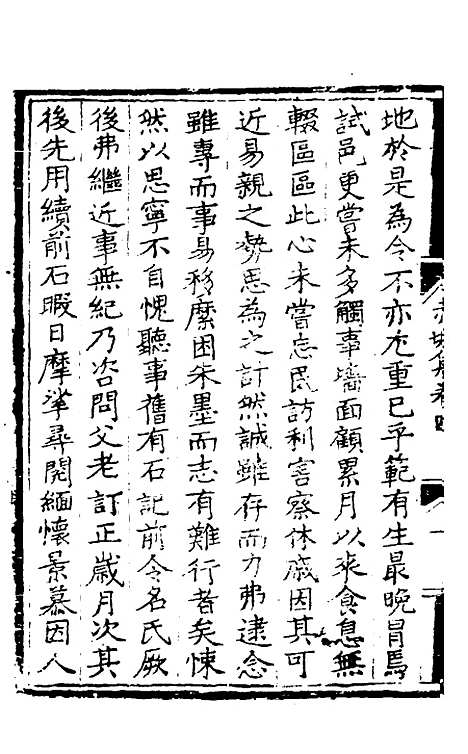 地於是為令不亦尤重已乎範有生最晚冐焉
試邑更嘗未多觸事墻面顧累月以來食息無
輟區區此心未嘗忘民訪利害察休戚因其可
近易親之勢思為之計然誠雖存而力弗逮念
雖專而事易移縻困朱墨而志有難行者矣悚
然以思寧不自愧聽事舊有石記前令名氏厥
後弗繼近事無紀乃咨問父老訂正歲月次其
後先用續前石暇日摩挲尋閱緬懷景慕因人
赤城集卷四